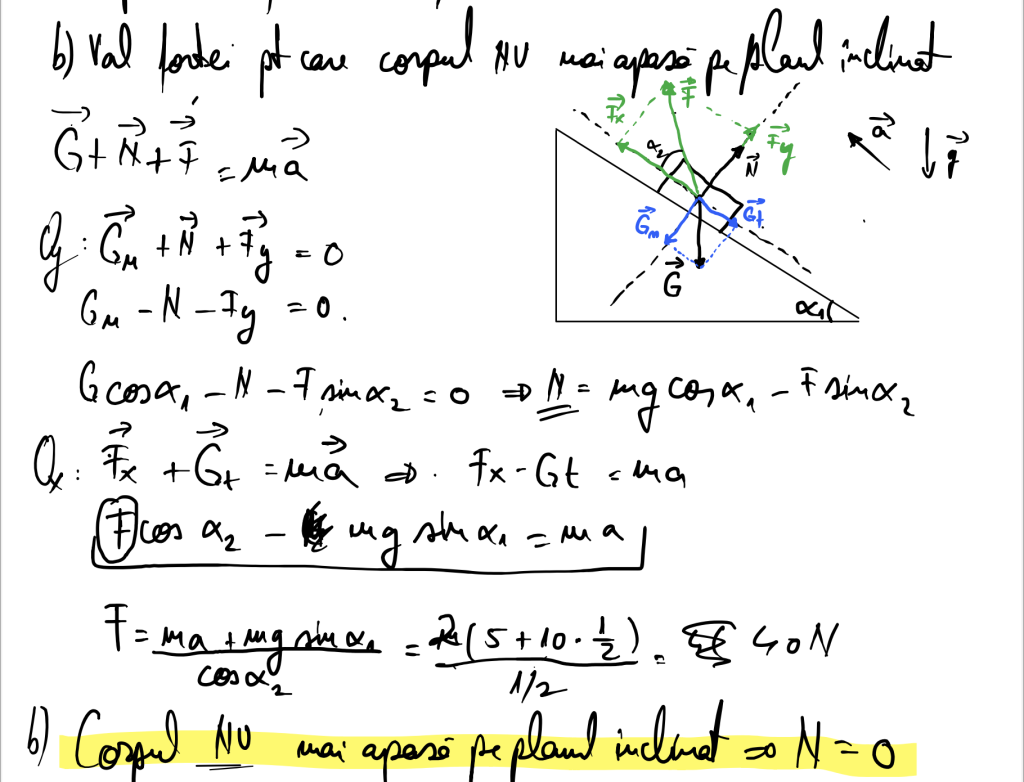 b) Val forței pt care corpul NU mai apasă pe planul înclinat
G⃗ + N⃗ + F⃗ = ma⃗
Oy: G⃗n + N⃗ + F⃗y = 0
Gn - N - Fy = 0.
G cosα₁ - N - F sinα₂ = 0 ⇒ N = mg cosα₁ - F sinα₂
Ox: F⃗x + G⃗t = ma⃗ ⇒ Fx - Gt = ma
F cos α₂ - mg sin α₁ = ma
F = (ma + mg sin α₁)/(cos α₂) = 2(5 + 10 · 1/2)/(1/2) = 40N
b) Corpul NU mai apasă pe planul înclinat ⇒ N = 0
F⃗x
F⃗
F⃗y
α₂
N⃗
G⃗n
G⃗t
G⃗
α₁
a⃗
g⃗